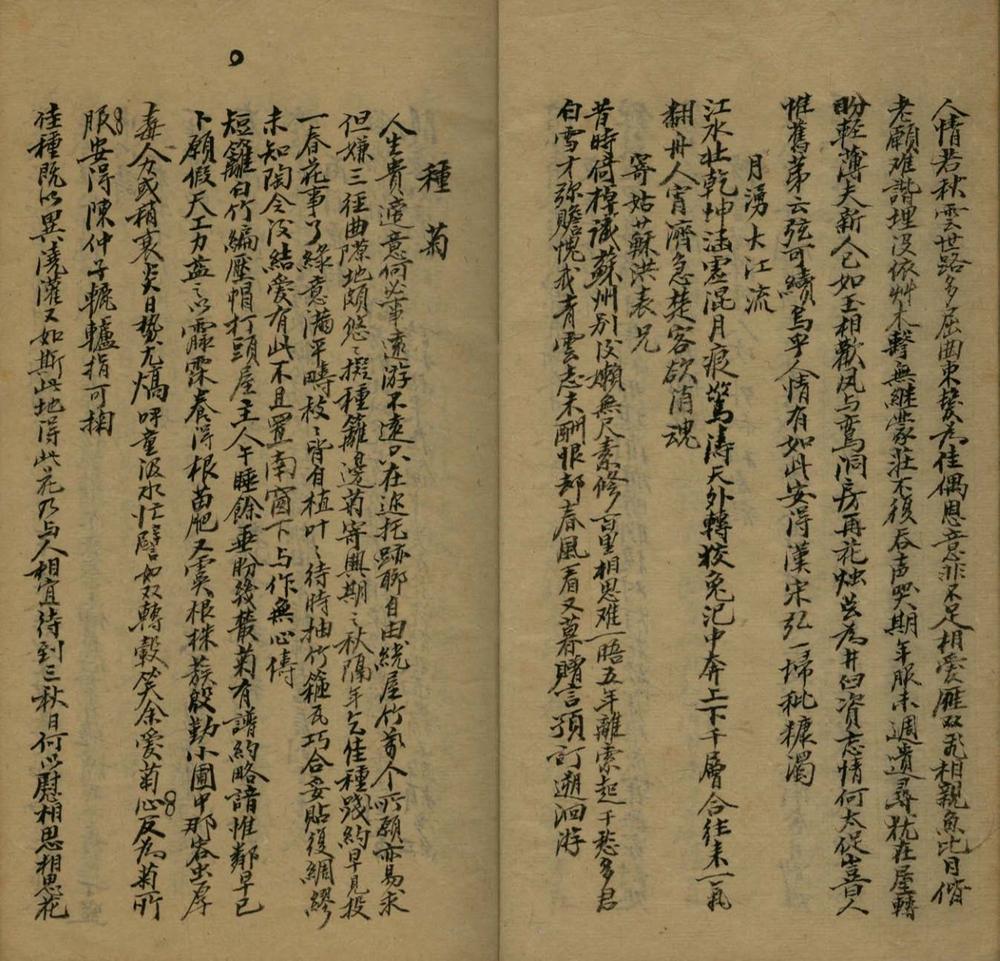 人情若秋雲世路多屈曲束髮為佳偶恩意非不足相愛雁双飛相親魚比目偕
老願難諧埋没依艸木擊無継蒙莊不復吞声哭期年服未週遺尋枕在屋轉
盼輕薄夫新人已如玉相歡凤与鸾洞房再花烛岂為井臼資忘情何太促喜人
惟舊弟云弦可續烏乎人情有如此安得漢宋弘一埽秕糠濁
月湧大江流
江水壮乾坤涵虚混月痕驚濤天外轉狡兔汜中奔上下千層合往来一氣
翻舟人宵濟急楚客欲消魂
寄姑苏洪表兄
昔時倚棹議蘇州別後嬾無尺素修百里相思难一晤五年離索起千愁多君
白雪才弥贍愧我青雲志未酬恨却春風看又暮贈言預訂遡洄游
種菊
人生貴適意何必事遠游不遠只在迩托跡聊自由繞屋竹萬个所願亦易求
但嫌三徑曲隙地頗悠〻擬種籬邊菊寄興期〻秋隔年乞佳種踐約早見投
一春花事了綠意滿平疇枝〻皆自植叶〻待時抽竹籬瓦巧合妥貼復綢繆
未知陶令後結愛有此不且置南窗下与作無心儔
短籬白竹編壓帽打頭屋主人午睡餘垂盼幾叢菊有譜約略諳惟鄰早已
卜願假天工力益之以霢霂養得根苗肥又虞根株蔟殷勤小圃中那容虫孽
毒人力或稍衰炎日势尤熇呼童汲水忙譬如双轉轂笑余愛菊心反為菊所
服安得陳仲子轆轤指可掬
佳種既以異澆灌又如斯此地得此花乃与人相宜待到三秋日何以慰相思相思花